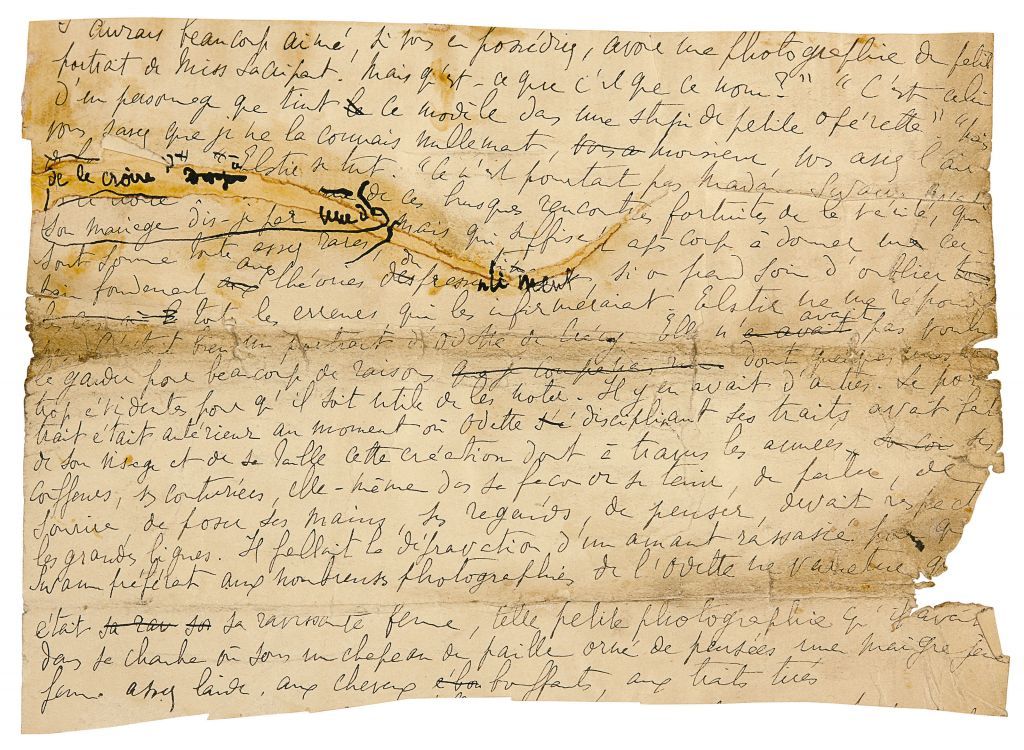 J'aurais beaucoup aimé, si vous en possédiez, avoir une photographie du petit
portrait de Miss Sacripant. Mais qu'est-ce que c'est que ce nom ?" "C'est celui
d'un personnage que tint le ce modèle dans une stupide petite opérette" "Mais
vous savez que je ne la connais nullement, monsieur vous avez l'air
Elstir se tut. "Ce n'est pourtant pas Madame Swann avant
de le croire
son mariage dis-je par une de de ces brusques rencontres fortuites de la vérité, qui
sont somme toute assez rares mais qui suffisent après coup à donner un cer
tain fondement aux théories des pressentiments, si on prend soin d'oublier
toutes les erreurs qui les infirmeraient. Elstir ne me répondit
pas. C'était bien un portrait d'Odette de Crécy. Elle n'avait pas voulu
le garder pour beaucoup de raisons dont quelques unes
trop évidentes pour qu'il soit utile de les noter. Il y en avait d'autres. Le por
trait était antérieur au moment où Odette disciplinant ses traits avait fait
de son visage et de sa taille cette création dont à travers les années, ses
coiffeurs, ses couturières, elle-même dans sa façon de se tenir, de parler, de
sourire de poser ses mains, ses regards, de penser, devait respecter
les grandes lignes. Il fallait la dépravation d'un amant rassasié pour que
Swann préférât aux nombreuses photographies de l'Odette ne varietur qu'
était sa rav sa ravissante femme, telle petite photographie qu'il avait
dans sa chambre où sous un chapeau de paille orné de pensées une maigre jeune
femme assez laide, aux cheveux bouffants, aux traits tirés